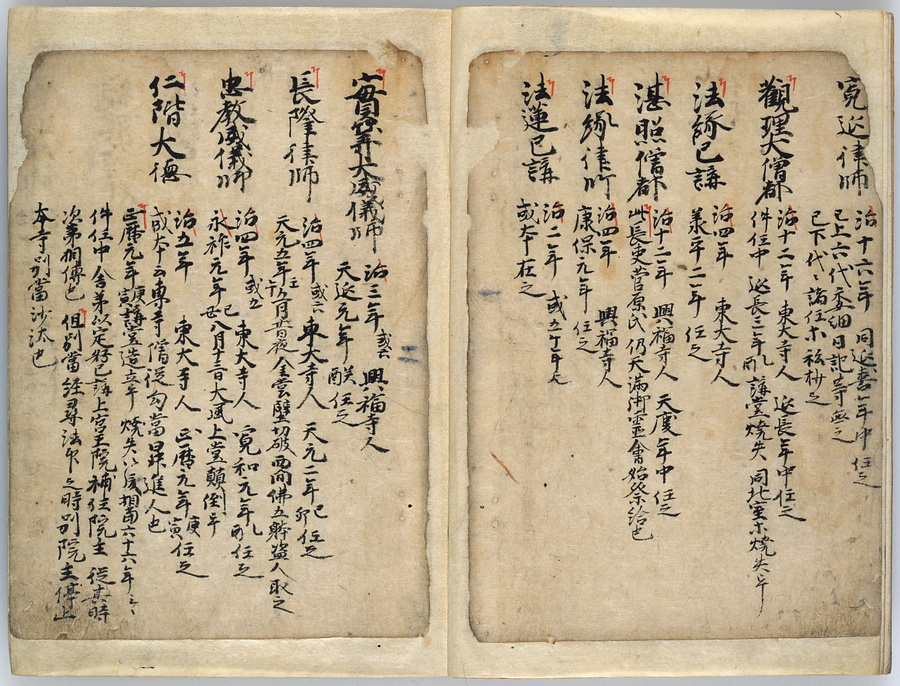 寛延律師 治十六年 同延喜年中任之
已上六代委細日記等無之
已下代々諸任ホ
觀理大僧都 治十二年 東大寺人 延長年中任之
件任中 延長三年乙酉 講堂焼失 同北室ホ焼失畢
法縁已講 治四年 東大寺人
承平二年任之
湛照僧都 治十二年 興福寺人 天慶年中任之
此長吏菅原氏 仍天満御霊會始祭給也
法縁律師 治四年 興福寺人
康保元年任之
法蓮已講 治二年
或本在之
大威儀師 治三年 或六 興福寺人
天延元年 任之
長隆律師 治四年 或六 東大寺人 天元二年己卯任之
天元五年壬午五月廿日夜 金堂壁切破 西間佛五躰盗人取之
忠教威儀師 治四年 或五 東大寺人 寛和元年乙酉任之
永祚元年己丑八月十三日大風上堂顛倒畢
仁階大德 治五年 東大寺人 正暦元年庚寅任之
或本云専寺僧従勾當昇進人也
正暦元年庚寅講堂造立畢 焼失以後相當六十六年云々
件任中 舎弟以定好已講上宮王院補任院主 従其時
次第相傳也 但別當經尋法印之時別院主停止
本寺別當沙汰也